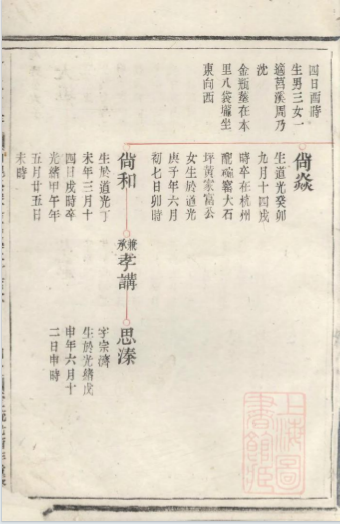 四日酉時
生男三女一
適莒溪周乃
沈
金瓶葬在本
里八袋壠坐
東向西
尙焱
生道光癸卯
九月十四戌
時卒在杭州
配喻窰大石
坪黃家富公
女生於道光
庚子年六月
初七日卯時
尙和
生於道光丁
未年三月十
四日戌時卒
光緖甲午年
五月廿五日
未時
兼承孝講
思溱
字宗濟
生於光緖戊
申年六月十
二日申時
上海圖書館藏